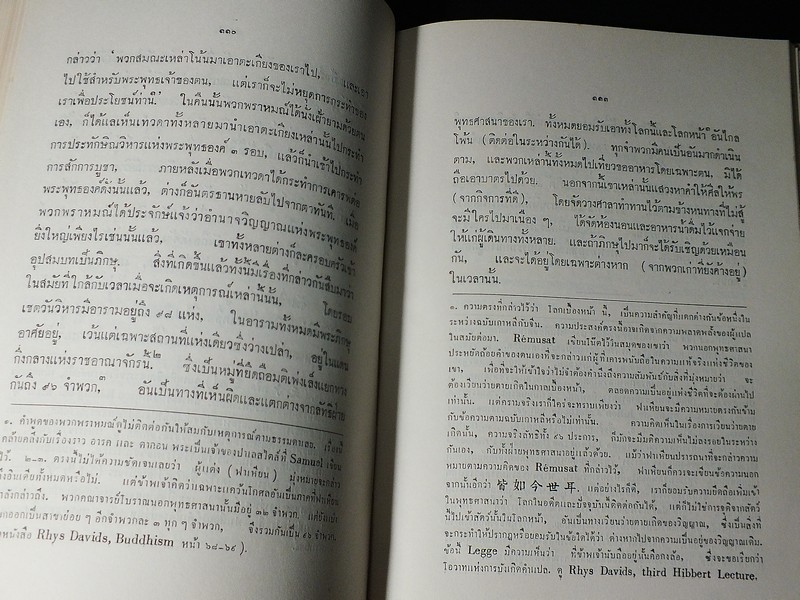 ๑๑๐
กล่าวว่า ' พวกสมณะเหล่าโน้นมาเอาตะเกียงของเราไป,
ไปใช้สำหรับพระพุทธเจ้าของตน, แต่เราก็จะไม่หยุดการกระทำของ
เราเพื่อประโยชน์ท่านี้.' ในคืนนั้นพวกพราหมณ์ได้นั่งเฝ้ายามด้วยตน
เอง, ก็ได้แลเห็นเทวดาทั้งหลายมานำเอาตะเกียงเหล่านั้นไปกระทำ
การประทักษิณวิหารแห่งพระพุทธองค์ ๓ รอบ, แล้วก็นำเข้าไปกระทำ
การสักการบูชา, ภายหลังเมื่อพวกเทวดาได้กระทำการเคารพต่อ
พระพุทธองค์ดั่งนั้นแล้ว, ต่างก็อันตรธานหายลับไปจากตาทันที. เมื่อ
พวกพราหมณ์ได้ประจักษ์แจ้งว่าอำนาจวิญญาณแห่งพระพุทธองค์
ยิ่งใหญ่เพียงไรเช่นนั้นแล้ว, เขาทั้งหลายต่างก็ละครอบครัวเข้า
อุปสมบทเป็นภิกษุ. สิ่งที่เกิดขึ้นแล้วทั้งนั้นมีเรื่องที่กล่าวกันสืบมาว่า
ในสมัยที่ใกล้กับเวลาเมื่อจะเกิดเหตุการณ์เหล่านั้นนั้น, โดยรอบ
เชตวันวิหารมีอารามอยู่ถึง ๙๘ แห่ง, ในอารามทั้งหมดมีพระภิกษุ
อาศัยอยู่, เว้นแต่เฉพาะสถานที่แห่งเดียวซึ่งว่างเปล่า, อยู่ในแดน
กึ่งกลางแห่งราชอาณาจักรนี้.๒ ซึ่งเป็นหมู่ที่ยึดถือมติเพ่งเล็งแยกทาง
กันถึง ๙๖ จำพวก,๓ อันเป็นทางที่เห็นผิดและแตกต่างจากลัทธิฝ่าย
๑. คำพูดของพวกพราหมณ์ดูไม่ติดต่อกันให้สมกับเหตุการณ์ตามธรรมดาเลย. เรื่องนี้
คล้ายคลึงกับเรื่องราว อารค และ ดากอน พระเป็นเจ้าของปาเลสไตล์ที่ Samuel เขียน
ไว้. ๒-๓. ตรงนี้ไม่ให้ความชัดเจนเลยว่า ผู้แต่ง (ฟาเหียน) มุ่งหมายจะกล่าว
ถึงอินเดียทั้งหมดหรือไม่. แต่ข้าพเจ้าคิดว่าเฉพาะแคว้นโกศลอันเป็นภาคที่ฟาเหียน
กำลังกล่าวถึง. พวกคณาจารย์โบราณนอกพุทธศาสนานั้นมีอยู่ ๓๒ จำพวก,
แตกออกเป็นสาขาย่อย ๆ อีกจำพวกละ ๓ ทุก ๆ จำพวก, จึงรวมกันเป็น ๙๖ จำพวก
หนังสือ Rhys Davids, Buddhism หน้า ๖๘-๖๙ ).
๑๑๑
พุทธศาสนาของเรา. ทั้งหมดยอมรับเอาทั้งโลกนี้และโลกหน้า๑ อันไกล
โพ้น (ติดต่อในระหว่างกันได้). ทุกจำพวกมีคนเป็นอันมากดำเนิน
ตาม, และพวกเหล่านี้ทั้งหมดไปเที่ยวขออาหารโดยเฉพาะตน, มิได้
ถือเอาบาตรไปด้วย. นอกจากนี้เขาเหล่านั้นแสวงหาคำให้ศีลให้พร
(จากกิจการที่ดี), โดยจัดวางศาลาทำทานไว้ตามข้างหนทางที่ไม่สู้
จะมีใครไปมาเนือง ๆ, ได้จัดห้องนอนและอาหารน้ำดื่มไว้แจกจ่าย
ให้แก่ผู้เดินทางทั้งหลาย. และถ้าภิกษุไปมาก็จะได้รับเชิญด้วยเหมือน
กัน, และจะได้อยู่โดยเฉพาะต่างหาก (จากพวกเก่าที่ยังค้างอยู่)
ในเวลานั้น.
๑. ความตรงที่กล่าวไว้ว่า โลกเบื้องหน้า นี้, เป็นความสำคัญที่แตกต่างกันข้อหนึ่งใน
ระหว่างฉบับเกาหลีกับจีน. ความประสงค์ตรงนี้อาจเกิดจากความพลาดพลั้งของผู้แปล
ในสมัยต่อมา. Rémusat เขียนโน๊ตไว้ในสมุดของเขาว่า พวกนอกพุทธศาสนา
ประหยัดถ้อยคำของตนเองที่จะกล่าวแก่ผู้ที่เคารพนับถือในความแท้จริงแห่งชีวิตของ
เขา, เพื่อที่จะให้เข้าใจว่าไม่จำต้องคำนึงถึงความสัมพันธ์กับสิ่งที่มุ่งหมายว่า จะ
ต้องเวียนว่ายตายเกิดในกาลเบื้องหน้า, ตลอดความเป็นอยู่แห่งชีวิตที่จะต้องผ่านไป
เท่านั้น. แต่ความจริงเราก็ใคร่จะทราบเหมือนว่า ฟาเหียนจะมีความหมายตรงกับข้าม
กับข้อความตามฉบับเกาหลีหรือไม่เท่านั้น. ความคิดเห็นในเรื่องการเวียนว่ายตาย
เกิดนั้น, ความจริงลัทธิทั้ง ๙๖ ประการ, ก็มักจะมีมติความเห็นไม่ลงรอยในระหว่าง
กันเอง, กับทั้งฝ่ายพุทธศาสนาอยู่แล้วด้วย. แม้ว่าฟาเหียนปรารถนาที่จะกล่าวความ
หมายตามความคิดของ Rémusat ที่กล่าวไว้, ฟาเหียนก็ควรจะเขียนข้อความนอก
จากนั้นอีกว่า 皆如今世耳. แต่อย่างไรก็ดี, เราก็ยอมรับความยึดถือเพิ่มเข้า
ในพุทธศาสนาว่า โลกในอดีตและปัจจุบันนี้ติดต่อกันได้, แต่ก็ไม่ใช่การจุติจากสัตว์
นี้ไปเข้าสัตว์นั้นในโลกหน้า, อันเป็นทางเวียนว่ายตายเกิดของวิญญาณ, ซึ่งเป็นสิ่งที่
จะกระทำให้ปรากฏหรือยอมรับในข้อใดได้ว่า ต่างหากไปจากความเป็นอยู่ของวิญญาณเดิม.
ข้อนี้ Legge มีความเห็นว่า ที่ข้าพเจ้านับถืออยู่นั้นคือกงล้อ, ซึ่งจะขอเรียกว่า
โอวาทแห่งการบังเกิดคำแปล. ดู Rhys Davids, third Hibbert Lecture.